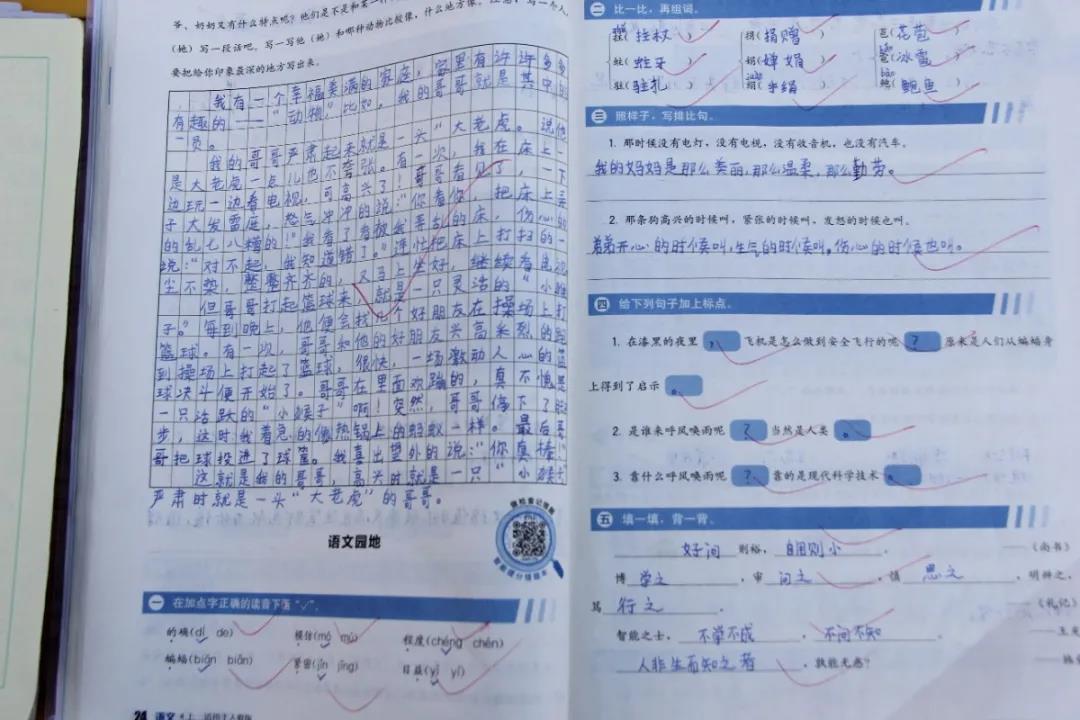 爷、奶奶又有什么特点呢？他们是不是和某一种
（她）写一段话吧，写一写他（她）和哪种动物比较像，什么地方像。注意，写一个人
要把给你印象最深的地方写出来。
我有一个幸福美满的家庭，家里有许许多多
有趣的——“动物”比如，我的哥哥就是其中的
一员。
我的哥哥严肃起来就是一头“大老虎。说他
是大老虎一点儿也不夸张。有一次，我在床上一
边玩一边看电视，可高兴了！哥哥看见了，一下
子大发雷庭，怒气冲冲的说：“你看你，把床上弄
的乱七八糟的！”我看了看被我弄乱的床，伤心的
说：“对不起，我知道错了。”连忙把床上打扫的一
尘不染，整整齐齐的，又马上坐好，继续看电视
但哥哥打起篮球来，就是一只灵活的“小猴
子。”每到晚上，他便会找几个好朋友在操场上打
篮球。有一次，哥哥和他的好朋友兴高采烈的跑
到操场上打起了篮球，很快，一场激动人心的篮
球决斗便开始了。哥哥在里面欢蹦的，真不愧是
一只活跃的“小猴子”啊！突然，哥哥停下了脚
步，这时我着急的像热锅上的蚂蚁一样。最后哥
哥把球投进了球篮。我喜出望外的说：“你真棒！”
这就是我的哥哥，高兴时就是一只“小猴子
严肃时就是一头“大老虎”的哥哥。
语文园地
一 在加点字正确的读音下画“✓”。
的确(dí de) 模仿(mó mú) 程度(chéng chén)
蝙蝠(biān biǎn) 紧密(jǐn jǐng) 日益(yì yí)
24 语文
二 比一比，再组词。
拴(拴权) 捐(捐赠) 苞(花苞)
蛀(蛀牙) 娟(婵娟) 雹(冰雹)
驻(驻扎) 绢(手绢) 鲍(鲍鱼)
三 照样子，写排比句。
1. 那时候没有电灯，没有电视，没有收音机，也没有汽车。
我的妈妈是那么美丽，那么温柔，那么勤劳。
2. 那条狗高兴的时候叫，紧张的时候叫，发怒的时候也叫。
弟弟开心的时候叫，生气的时候叫，伤心的时候也叫。
四 给下列句子加上标点。
1. 在漆黑的夜里，飞机是怎么做到安全飞行的呢？原来是人们从蝙蝠身
上得到了启示。
2. 是谁来呼风唤雨呢？当然是人类。
3. 靠什么呼风唤雨呢？靠的是现代科学技术。
五 填一填，背一背。
好问则裕，自用则小。——《尚书》
博学之，审问之，慎思之，明辨之，
笃行之。《礼记》
智能之士，不学不成，不问不知
人非生而知之者，孰能无惑？